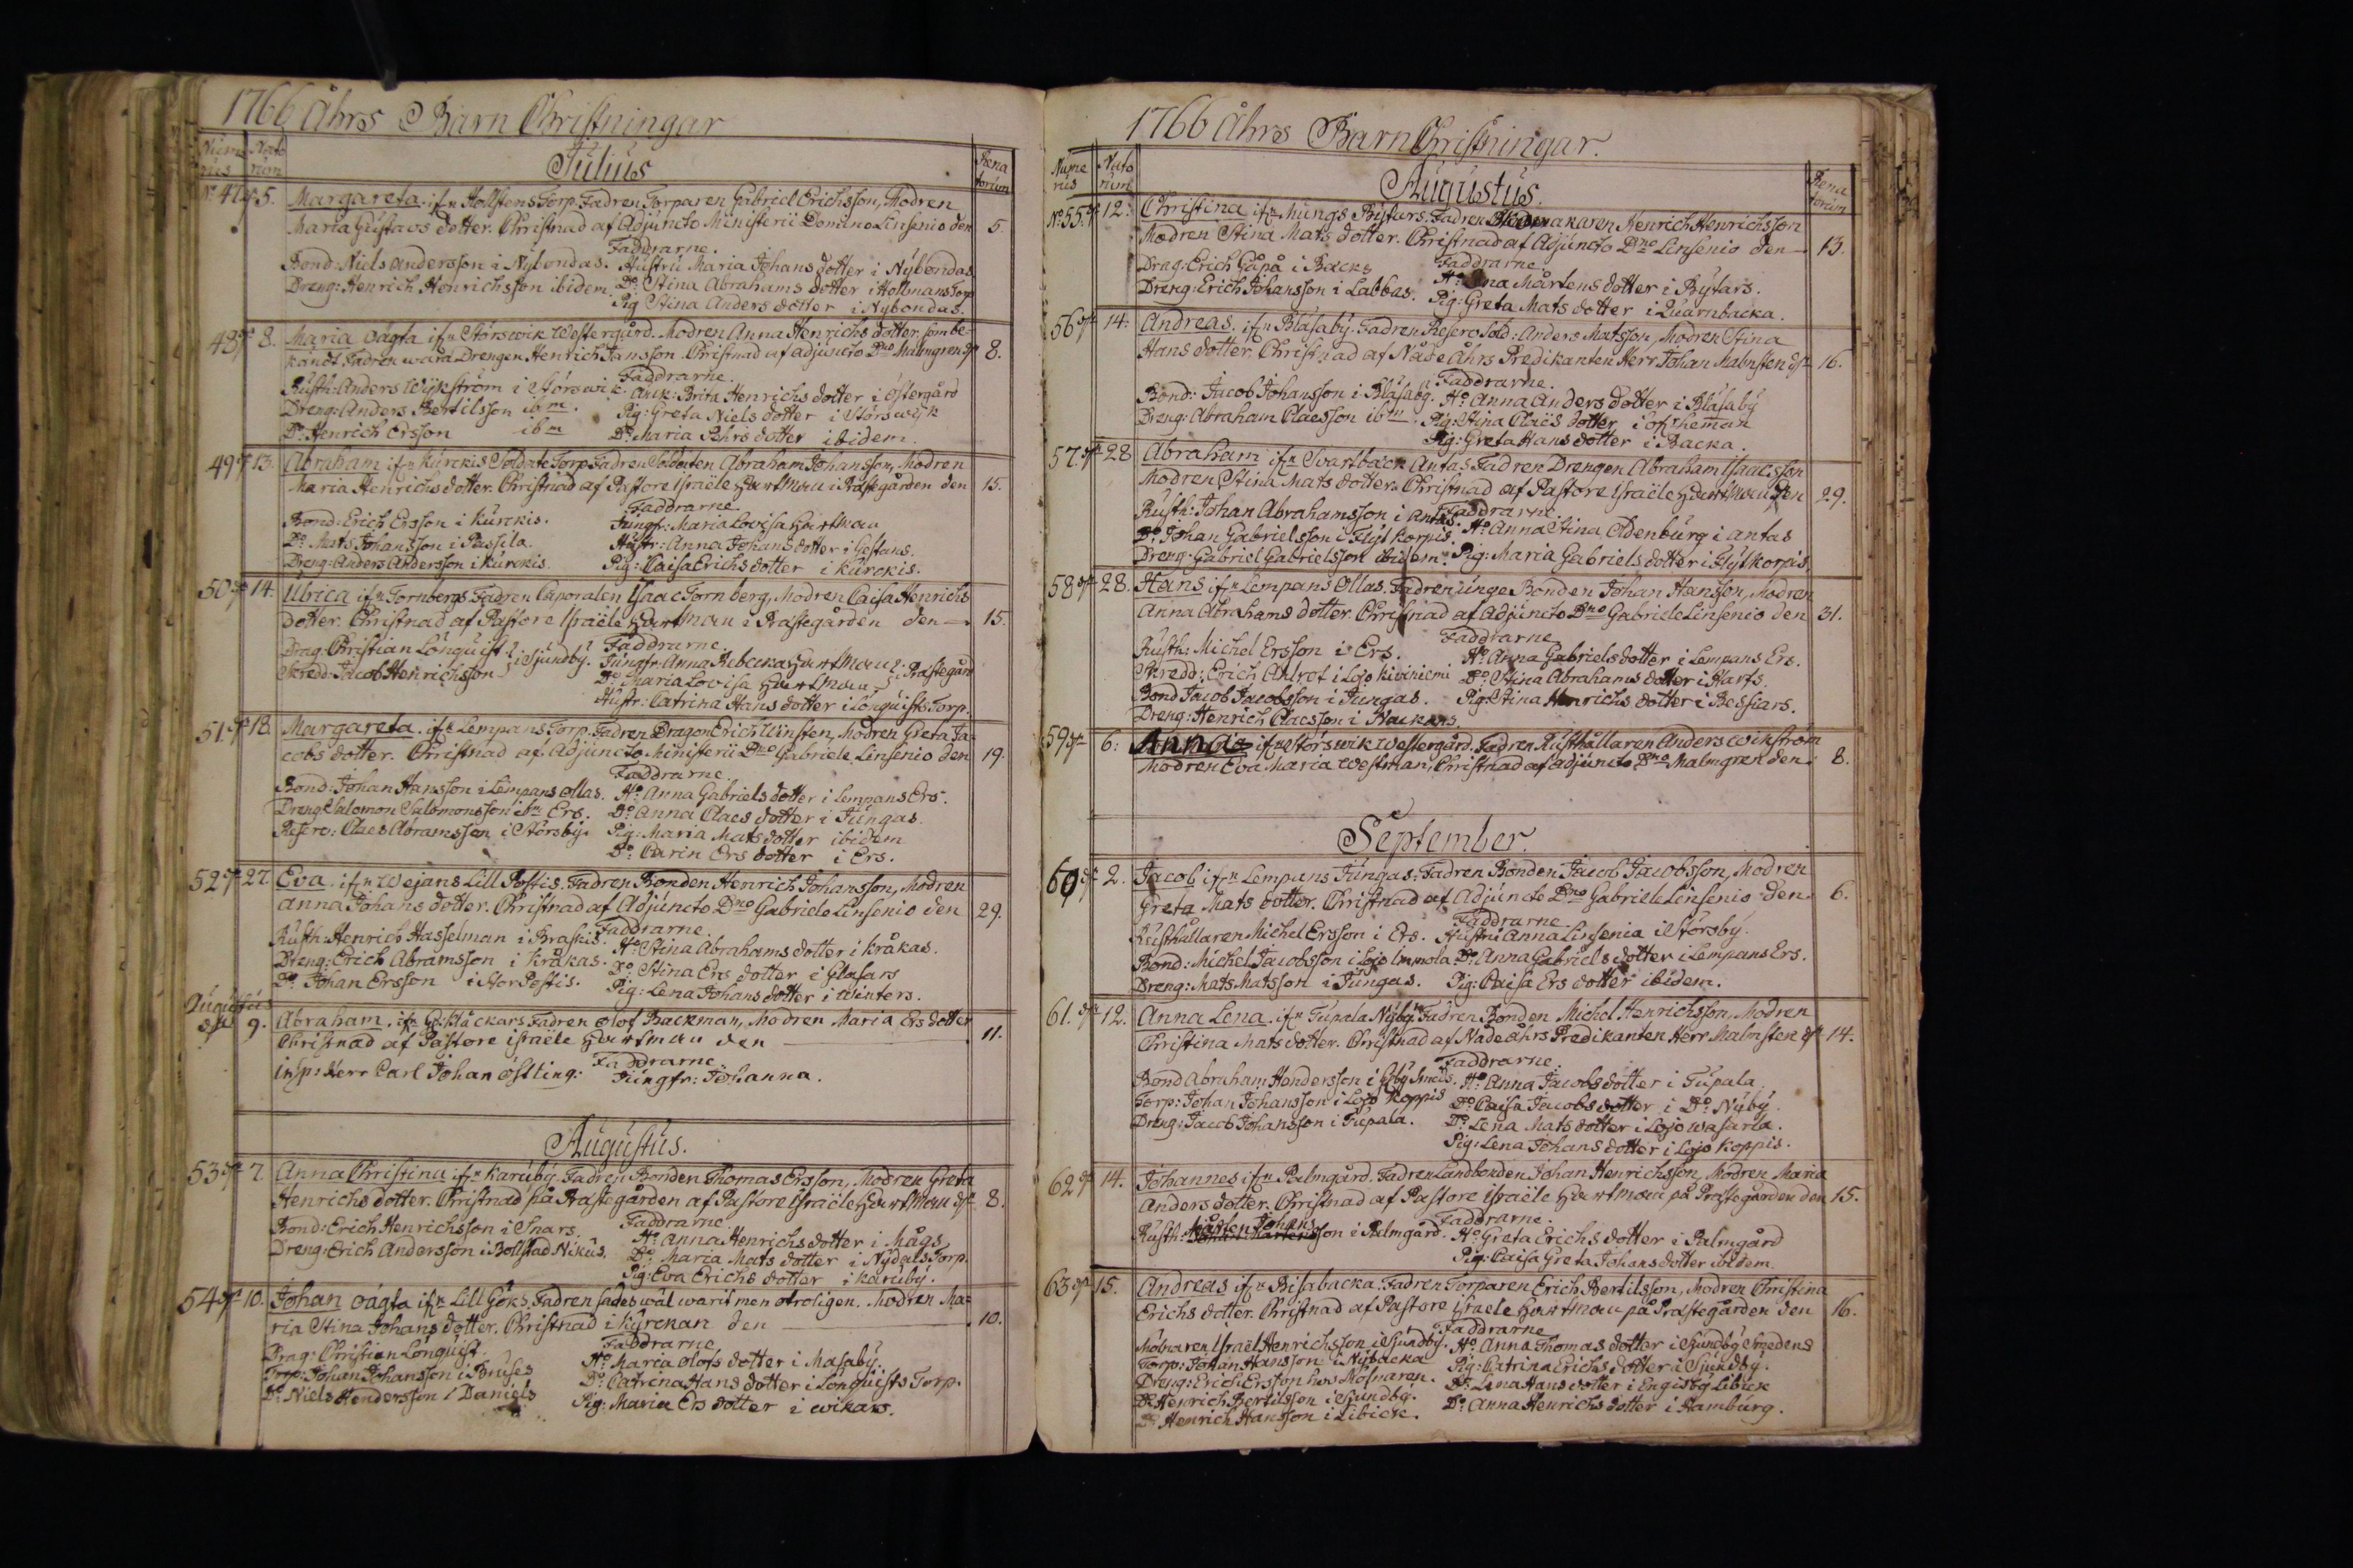 1766 Åhrs Barn Christningar
Nume rus
Nato rum
Julius
Rena torum
No 47 5. Margareta ifrn Hollstens Torp. Fadren Torparen Gabriel Erichsson, Modren
Maria Gustavs dotter. Christnad af Adjuncto Ministerii Domino Linsenio den 5.
Faddrarne.
Bond: Niels Andersson i Nybondas. Hustru Maria Johans dotter i Nybondas
Dreng: Henrich Henrichsson ibidem. Do Stina Abrahams dotter i Hollmans Torp
Pig Stina Anders dotter i Nybondas.
48 8. Maria oägta ifrn Störswik Westergård. Modren Anna Henrichs dotter, som be-
kändt Fadren wara Drengen Henrich Jansson. Christnad af adjuncto Dno Malmgren 8.
Faddrarne.
Rusth: Anders Wijkström i Störswik. Brita Henrichs dotter i Östergård
Dreng: Anders Bertilsson ibm. Pig: Greta Niels dotter i Störswijk
Do Henrich Ersson ibm Do Maria Pehrs dotter ibidem.
49 13. Abraham ifrn Kurckis Soldate Torp. Fadren Soldaten Abraham Johansson, Modren
Maria Henrichs dotter. Christnad af Pastore Israële Hartman i Prästegården den 15.
Faddrarne
Bond: Erich Ersson i Kurckis. Jungf: Maria Lovisa Hartman
Do Mats Johansson i Passila. Hustr: Anna Johans dotter i Gestans.
Dreng: Anders Andersson i Kurckis. Pig: Caisa Erichs dotter i Kurckis.
50 14. Ulrica ifrn Tornbergs Fadren Caporalen Isaac Tornberg, Modren Caisa Henrichs
dotter. Christnad af Pastore Israële Hartman i Prästegården den 15.
Faddrarne.
Drag: Christian Lönquist i Sjundby. Jungfr: Anna Rebecka Hartman Prästegård
Skredd: Jacob Henrichsson Do Maria Lovisa Hartman
Hustr: Catrina Hans dotter i Lönquists Torp.
51. 18. Margareta ifrn Lempans Torp. Fadren Dragon Erich Winsten, Modren Greta Ja-
cobs dotter. Christnad af Adjuncto Ministerii Dno Gabriele Linsenio den 19.
Faddrarne
Bond: Johan Hansson i Lempans Ollas. Ho Anna Gabriels dotter i Lempans Ers.
Dreng: Salomon Salomonsson ibm Ers. Do Anna Claes dotter i Jungas.
Reserv: Claes Abramsson i Störsby. Pig: Maria Mats dotter ibidem
Do Carin Ers dotter i Ers.
52 27. Eva ifrn Wejans Lill Postis. Fadren Bonden Henrich Johansson, Modren
Anna Johans dotter. Christnad af Adjuncto Dno Gabriele Linsenio den 29.
Faddrarne.
Rusth: Henrich Hasselman i Braskis. Ho Stina Abrahams dotter i Kråkas.
Dreng: Erich Abramsson i Kråkas. Do Stina Ers dotter i Glasars
Do Johan Ersson i Stor Postis. Pig: Lena Johans dotter i Winters.
Augustus
9. Abraham. ifrn Fadren Olof Backman, Modren Maria Ers dotter
Christnad af Pastore Israële Hartman den 11.
Faddrarne.
Insp: Herr Carl Johan Östling: Jungfr: Johanna.
Augustus.
53 7. Anna Christina ifrn Karuby. Fadren Bonden Thomas Ersson, Modren Greta
Henrichs dotter. Christnad på Prästegården af Pastore Israële Hartman 8.
Faddrarne.
Bond: Erich Henrichsson i Snars. Ho Anna Henrichs dotter i Mågs
Dreng: Erich Andersson i Bollstad Nikus. Do Maria Mats dotter i Nydals Torp.
Pig: Eva Erichs dotter i Karuby.
54 10. Johan oägta ifrn Lill Göks. Fadren sades wäl warit men otroligen. Modren Ma-
ria Stina Johans dotter. Christnad i Kyrckan den 10.
Faddrarne
Drag: Christian Lönquist. Ho Maria Olofs dotter i Masaby.
Torp: Johan Johansson i Bruses Do Catrina Hans dotter i Lönquists Torp.
Do Niels Hendersson i Daniels Pig: Maria Ers dotter i Wikars.
1766 Åhrs Barn Christningar.
Nume rus
Nato rum
Augustus.
Rena torum
No 55 12: Christina ifrn Mungs Rytars. Fadren Henrich Henrichsson
Modren Stina Mats dotter. Christnad af Adjuncto Dno Linsenio den 13.
Faddrarne.
Drag: Erich Gåpå i Backs Ho Mårtens dotter i Rytars.
Dreng: Erich Johansson i Labbas. Pig: Greta Mats dotter i Quarnbacka.
56 14: Andreas. ifrn Blåsaby. Fadren Reserv Sold: Anders Matsson, Modren Stina
Hans dotter. Christnad af Nåde Åhrs Predikanten Herr Johan Malmsten 16.
Faddrarne.
Bond: Jacob Johansson i Blåsaby. Ho Anna Anders dotter i Blåsaby
Dreng: Abraham Claesson ibm. Pig: Stina Claës dotter
Pig: Greta Hans dotter i Backa.
57. 28 Abraham ifrn Svartbäck Antas Fadren Drengen Abraham Isaacsson
Modren Stina Mats dotter. Christnad af Pastore Israële Hartman den 29.
Faddrarne
Rusth: Johan Abrahamsson i Antas. Ho Anna Stina Oldenburg i Antas
Do Johan Gabrielsson i Flyt Korpis.
Dreng: Gabriel Gabrielsson ibidem. Pig: Maria Gabriels dotter i Flytkorpis.
58 28. Hans ifrn Lempans Ollas. Fadren unge Bonden Johan Hansson, Modren
Anna Abrahams dotter. Christnad af Adjuncto Dno Gabriele Linsenio den 31.
Faddrarne
Rusth: Michel Ersson i Ers. Ho Anna Gabriels dotter i Lempans Ers.
Skredd: Erich Anlrot i Lojo Kiviniemi Do Stina Abrahams dotter i Karfs.
Bond Jacob Jacobsson i Jungas. Pig: Stina Henrichs dotter i Bessars.
Dreng: Henrich Claesson i Nackans.
59 6: Anna ifrn Störswik Westergård. Fadren Rusthållaren Anders Wikström
Modren Eva Maria Westman, Christnad af Adjuncto Dno Malmgren den 8.
September.
60 2. Jacob ifrn Lempans Jungas. Fadren Bonden Jacob Jacobsson, Modren
Greta Mats dotter. Christnad af Adjuncto Dno Gabriele Linsenio den 6.
Faddrarne
Rusthållaren Michel Ersson i Ers. Hustru Anna Linsenia i Störsby.
Bond: Michel Jacobsson i Lojo Immola. Do Anna Gabriels dotter i Lempans Ers.
Dreng: Mats Matsson i Jungas. Pig: Caisa Ers dotter ibidem.
61. 12. Anna Lena. ifrn Tupala Nyby. Fadren Bonden Michel Henrichsson, Modren
Christina Mats dotter. Christnad af Nåde åhrs Predikanten Herr Malmsten 14.
Faddrarne.
Bond Abraham Hendersson i Smeds. Ho Anna Jacobs dotter i Tupala
Torp: Johan Johansson i Lojo Koppis Do Caisa Jacobs dotter i Do Nyby.
Dreng: Jacob Johansson i Tupala. Do Lena Mats dotter i Lojo Wasarla.
Pig: Lena Johans dotter i Lojo Koppis.
62 14. Johannes ifrn Palmgård. Fadren Landbonden Johan Henrichsson, Modren Maria
Anders dotter. Christnad af Pastore Israële Hartman på Prästegården den 15.
Faddrarne.
Rusth: Mårten Johansson i Palmgård. Ho Greta Erichs dotter i Palmgård
Pig: Caisa Greta Johans dotter ibidem.
63 15. Andreas ifrn Bisabacka. Fadren Torparen Erich Bertilsson, Modren Christina
Erichs dotter. Christnad af Pastore Israele Hartman på Prästegården den 16.
Faddrarne
Mölnaren Israel Henrichsson i Sjundby. Ho Anna Thomas dotter i Sjundby Smedens
Torp: Johan Hansson i Nybacka Pig: Catrina Erichs dotter i Sjundby.
Dreng: Erich Ersson hos Mölnaren. Do Lena Hans dotter i Engisby Libick
Do Henrich Bertilsson i Sjundby. Do Anna Henrichs dotter i Hamburg.
Do Henrich Hansson i Libick.